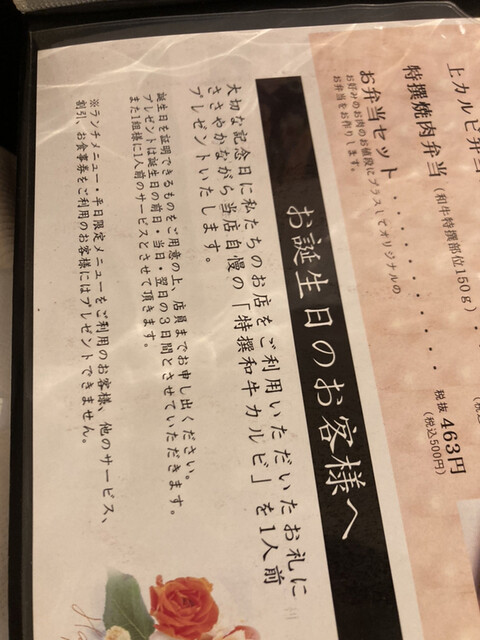 上カルビ弁当
特撰焼肉弁当（和牛特撰部位150g）
お弁当セット
税抜 463円
（税込500円）
お好みのお肉のお値段にプラスしてオリジナルの
お弁当をお作りします。
お誕生日のお客様へ
大切な記念日に私たちのお店をご利用いただいたお礼に
ささやかながら当店自慢の「特撰和牛カルビ」を1人前
プレゼントいたします。
誕生日を証明できるものをご用意の上、店員までお申し出ください。
プレゼントは誕生日の前日・当日・翌日の3日間とさせていただきます。
また1組様に1人前のサービスとさせて頂きます。
※ランチメニュー・平日限定メニューをご利用のお客様、他のサービス、
割引、お食事券をご利用のお客様にはプレゼントできません。